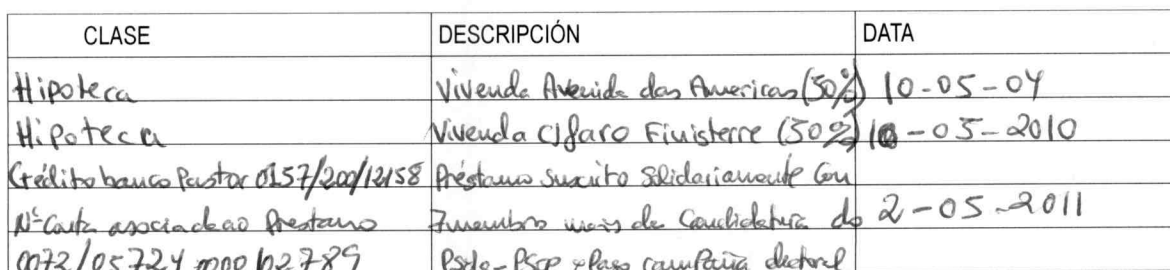 CLASE DESCRIPCIÓN DATA
Hipoteca Vivenda Avenida das Americas (50%) 10-05-04
Hipoteca Vivenda C/ faro Finisterre (50%) 10-05-2010
Crédito banco Pastor 0157/200/12158 Préstamo suscrito solidariamente con
Nº Conta asociada ao Prestamo 7 membro mais da Candidatura do 2-05-2011
0072/05724 PSdG-PSOE campaña electoral